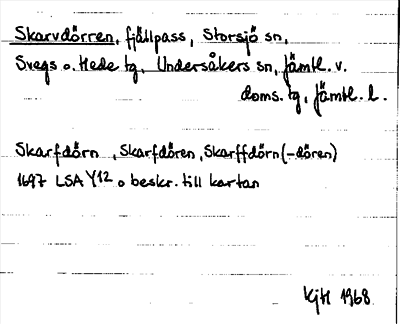 Skarvdörren, fjällpass, Storsjö sn,
Svegs o. Hede tg, Undersåkers sn, Jämtl. v.
doms. tg, Jämtl. l.
Skarfdörn, Skarfdören, Skarffdörn (-dören)
1697 LSA Y12 o beskr. till kartan
KjH 1968